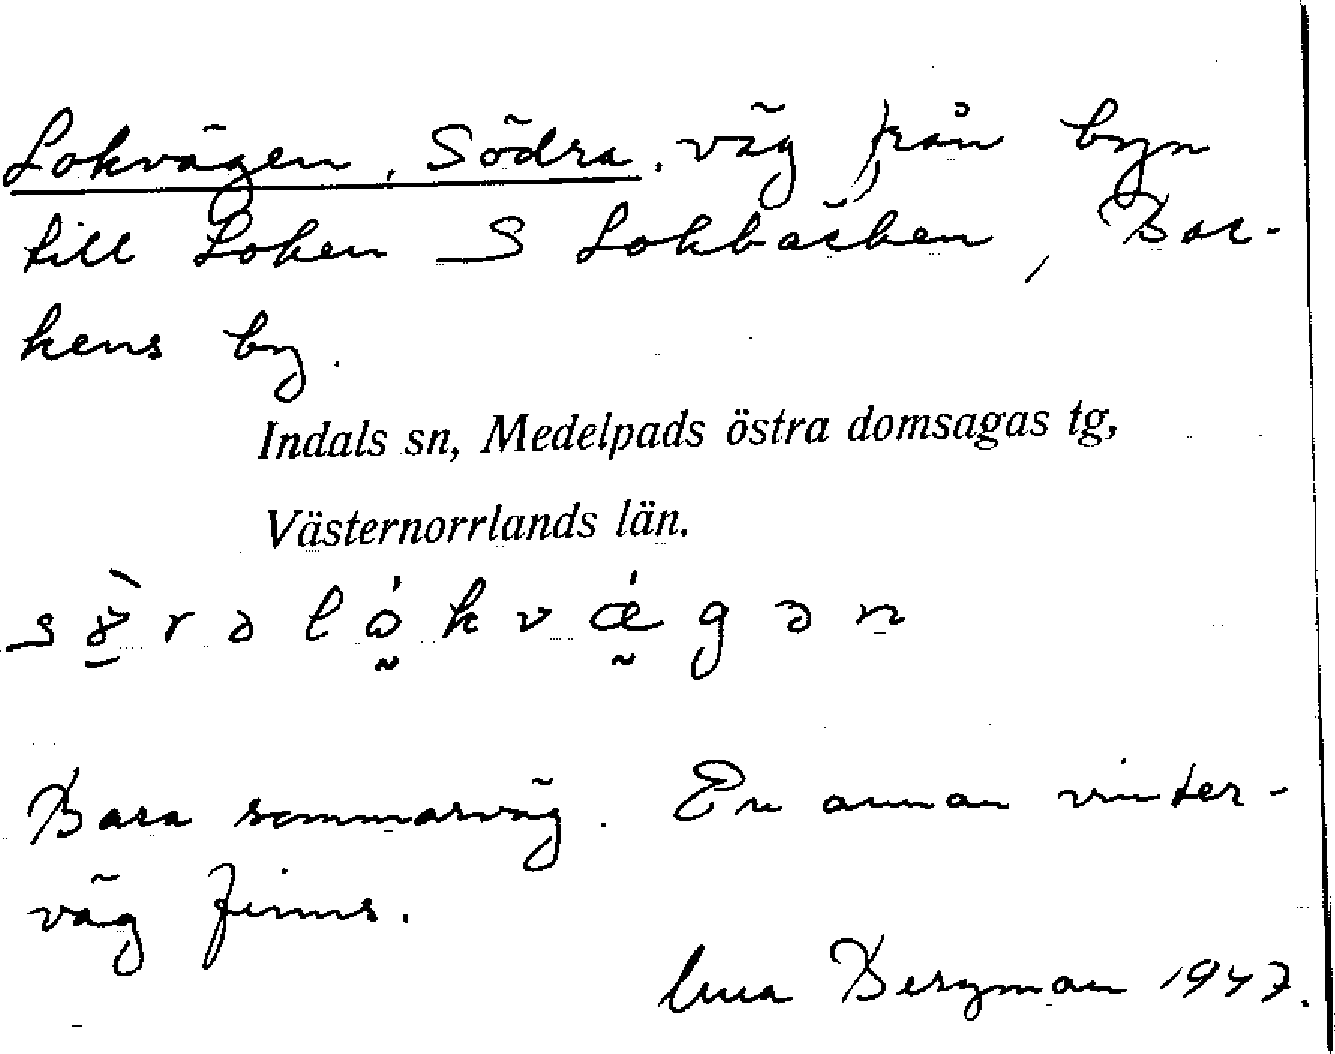 Lokvägen, Södra. väg från byn
till Loken S Lokbäcken, Bac-
kens by.
Indals sn, Medelpads östra domsagas tg,
Västernorrlands län.
Bara sommarväg. En annan vinter-
väg finns.
Bergman 1947.